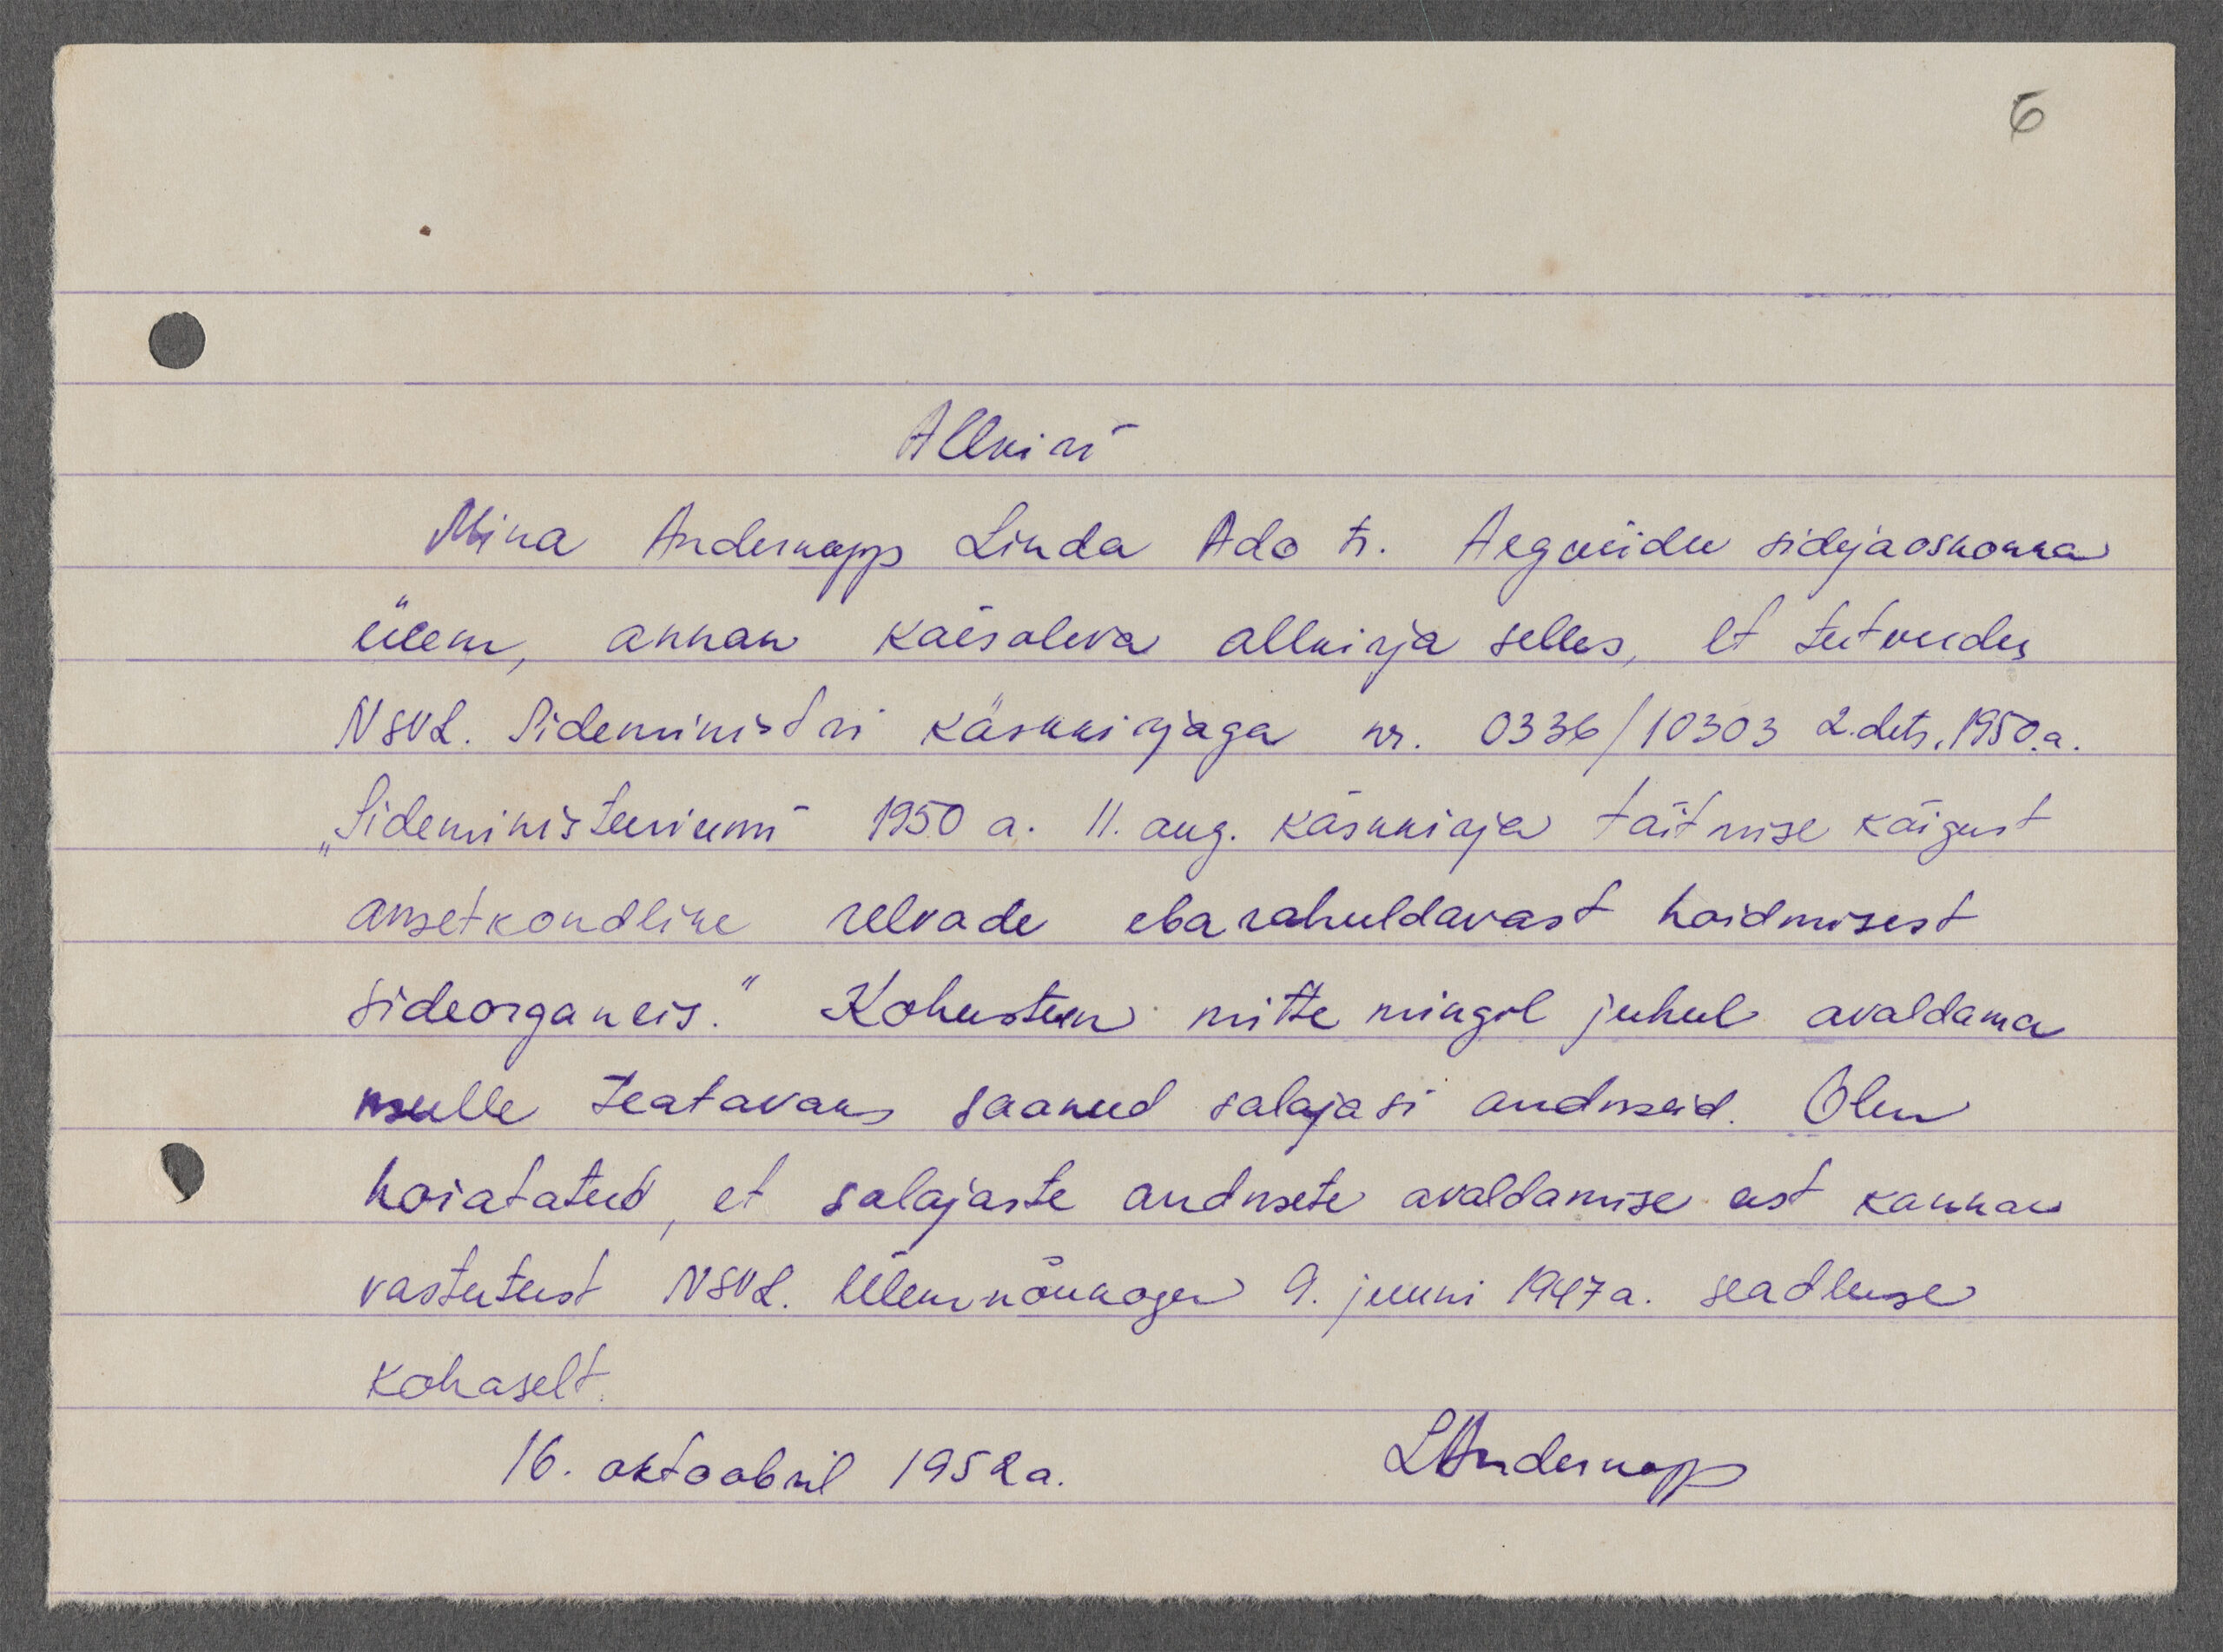 6
Allkiri
Mina Andernapp Linda Ado tr. Aegviidu sidejaoskonna
ülem, annan käesoleva allkirja selles, et tutvudes
NSVL. Sideministri käskkirjaga nr. 0336/10303 2.dets.1950.a.
„Sideministeeriumi 1950 a. 11. aug. käskkirja täitmise käigust
ametkondline relvade ebarahuldavast hoidmisest
sideorganeis." Kohustun mitte mingil juhul avaldama
mulle teatavaks saanud salajasi andmeid. Olen
hoiatatud, et salajaste andmete avaldamise est kannan
vastutust NSVL. Ülemnõukogu 9. juuni 1947 a. seadluse
kohaselt.
16. oktoobril 1952 a. LAndernapp